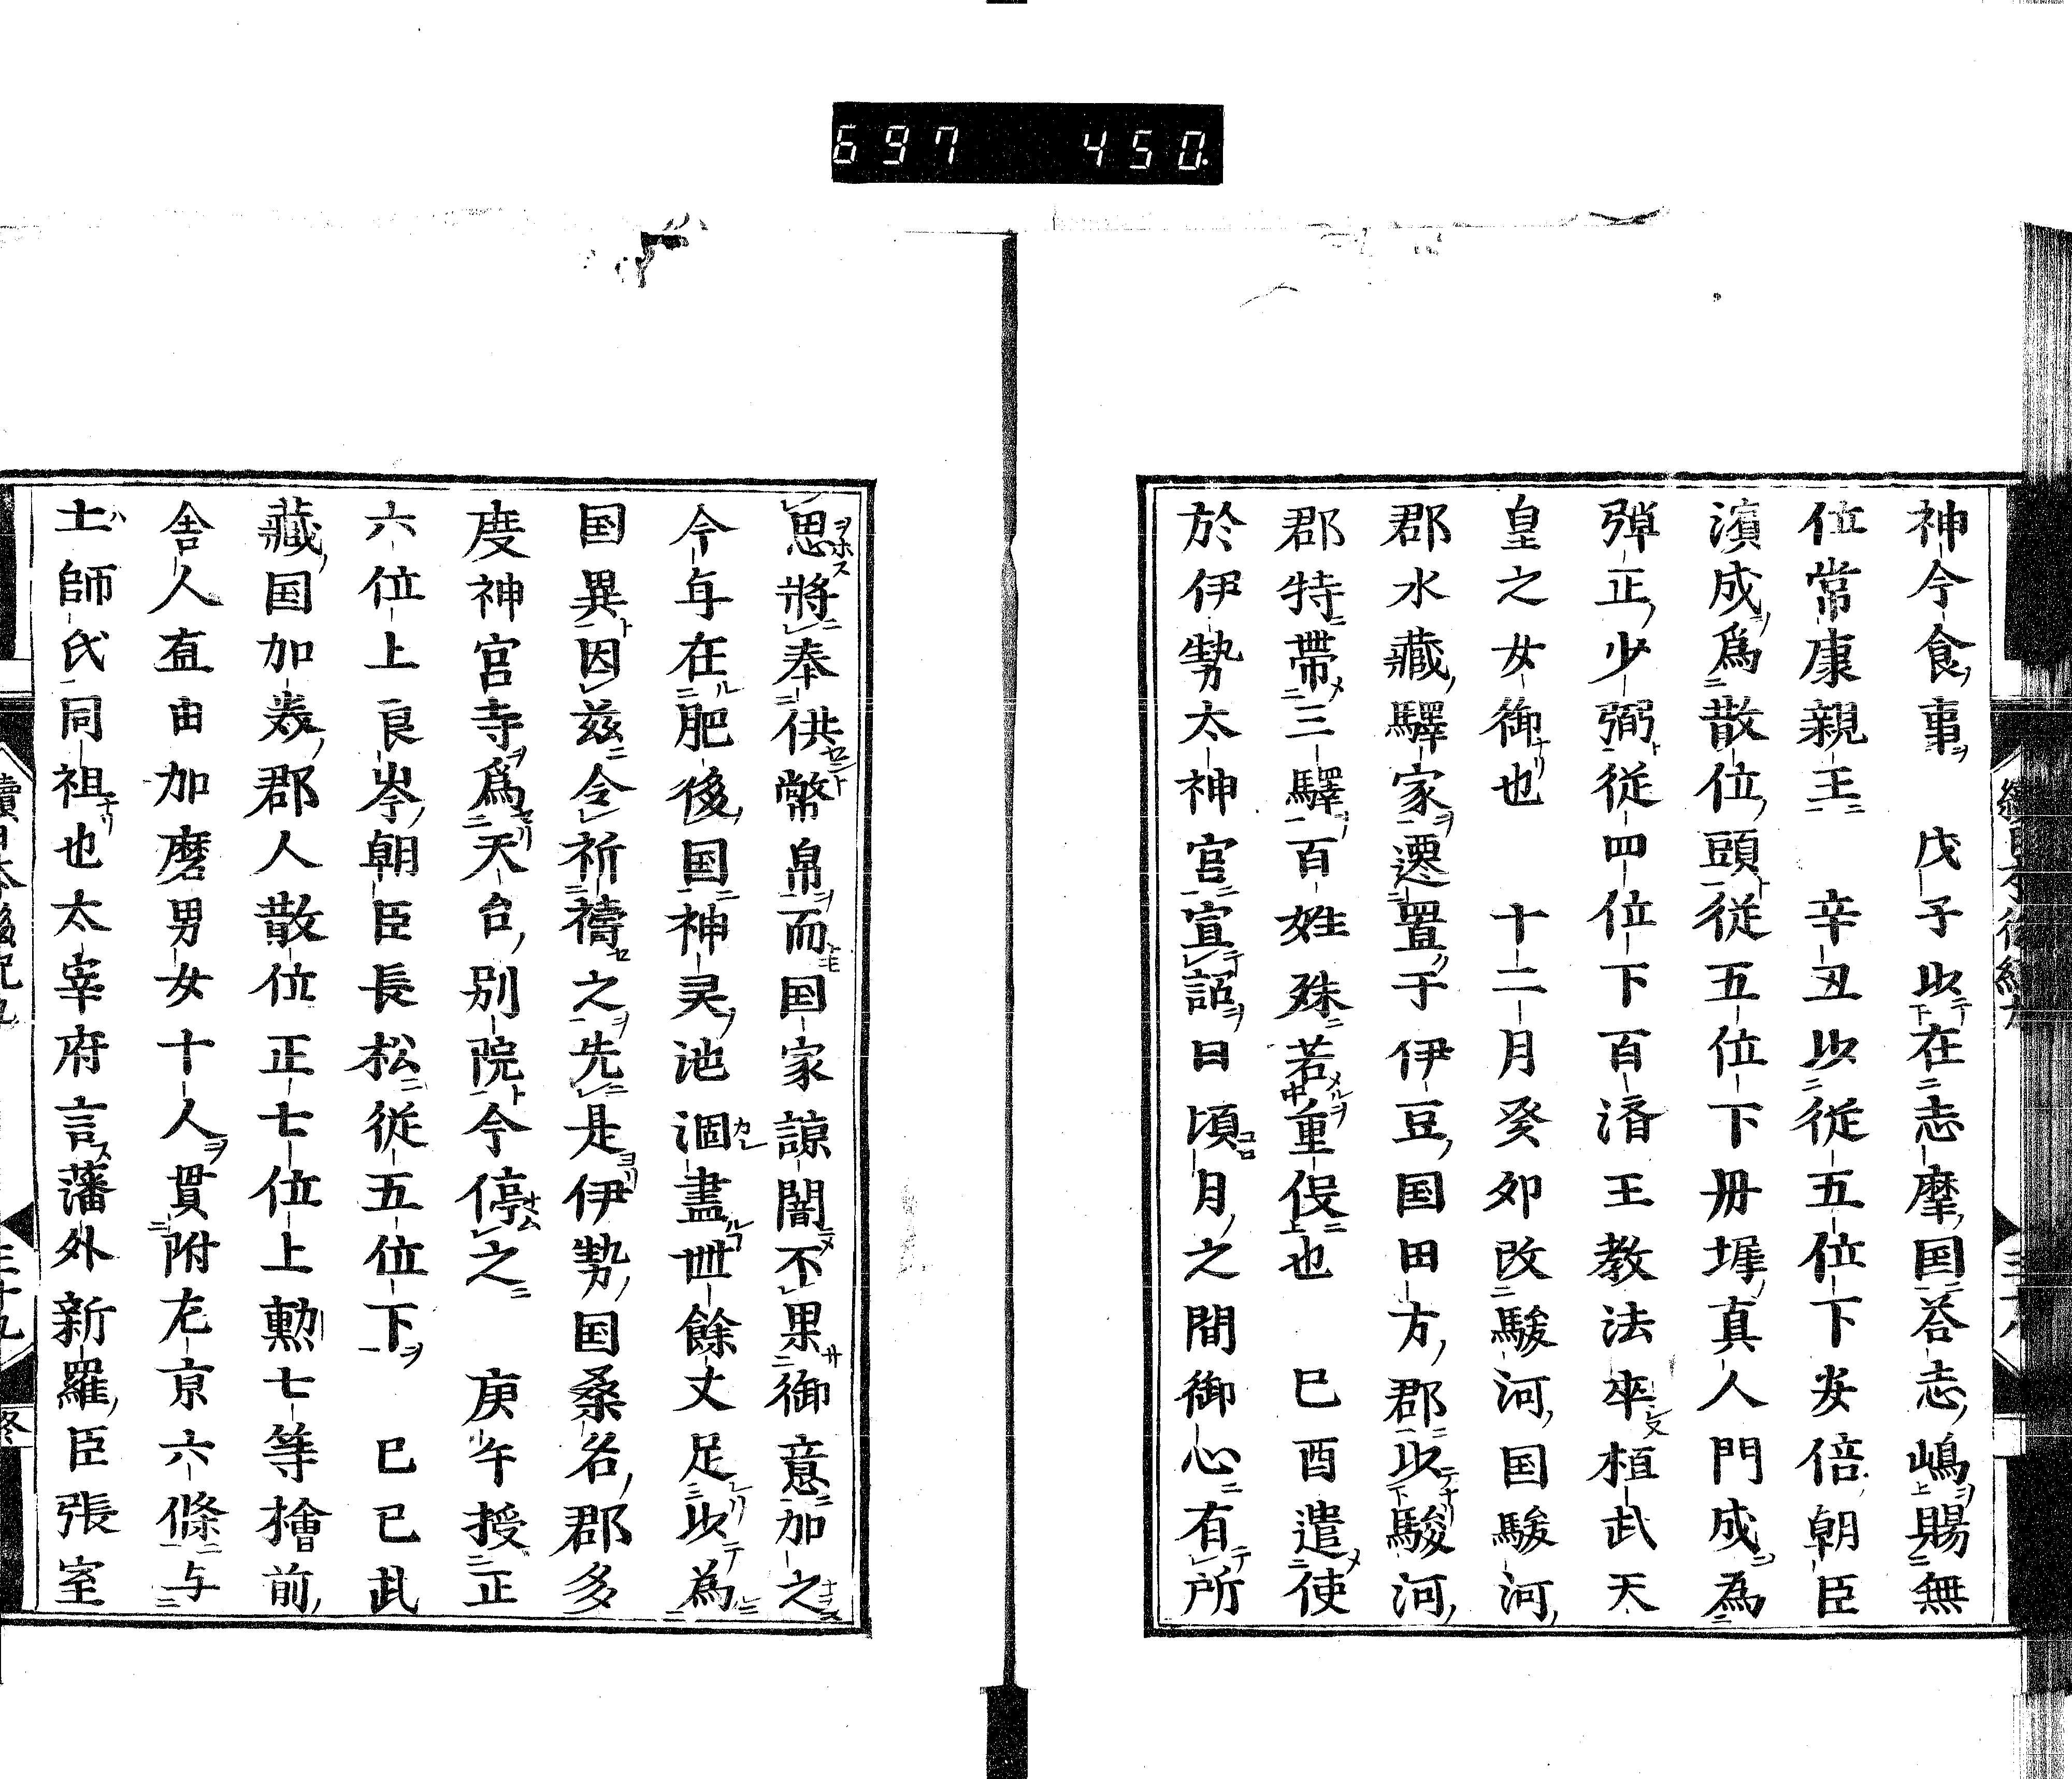 697 450.
神今食事 戊子以在志摩国荅志嶋賜無
位常康親王 辛丑以従五位下安倍朝臣
濱成爲散位頭従五位下丹墀真人門成為
弾正少弼従四位下百済王教法卒桓武天
皇之女御也 十二月癸卯改駿河国駿河
郡水藏驛家遷置于伊豆国田方郡以駿河
郡特帶三驛百姓殊若重役也 巳酉遣使
於伊勢太神宮宣詔曰頃月之間御心有所
思將奉供幣帛而国家諒闇不果御意加之
今年在肥後国神灵池涸盡卌餘丈足以為
国異因兹令祈禱之先是伊勢国桑名郡多
度神宮寺爲天台別院今停之 庚午授正
六位上良岑朝臣長松従五位下 巳巳武
藏国加美郡人散位正七位上勲七等檜前
舎人直由加麿男女十人貫附左京六條与
土師氏同祖也太宰府言藩外新羅臣張宝